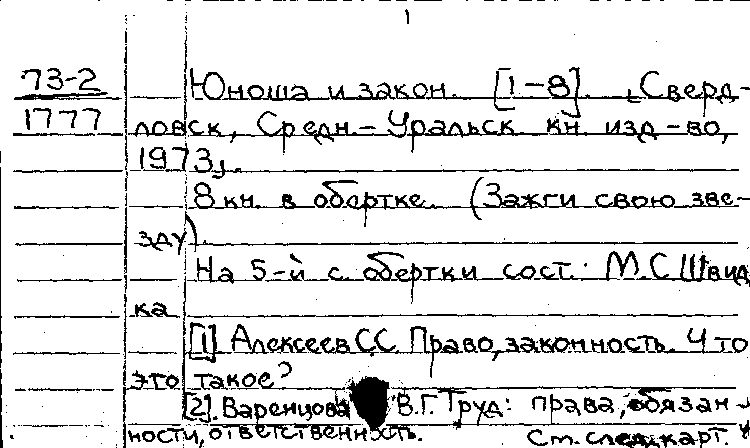 1
73-2 Юноша и закон. [1-8]. [Сверд-
1777 ловск, Средн.-Уральск. кн. изд-во,
1973].
8 кн. в обертке. (Зажги свою зве-
зду).
На 5-й с. обертки сост.: М.С Швид
ка
[1] Алексеев С.С. Право, законность. Что
это такое?
[2]. Варенцова В.Г. Труд: права, обязан-
ности, ответственность. См. след. карт.